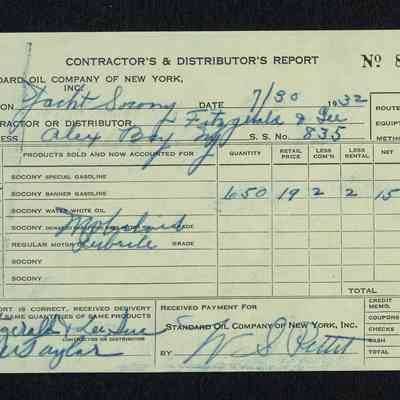 CONTRACTOR'S & DISTRIBUTOR'S REPORT Nº 8
DARD OIL COMPANY OF NEW YORK,
INC.
ON Yacht Socony DATE 7/30 1932
RACTOR OR DISTRIBUTOR, Fitzgerald & Lee
ESS Alex Bay NY S. S. No. 835
ROUTE
EQUIPT
METHOD
PRODUCTS SOLD AND NOW ACCOUNTED FOR QUANTITY RETAIL PRICE LESS COM'N LESS RENTAL NET
SOCONY SPECIAL GASOLINE
SOCONY BANNER GASOLINE 650 19 2 2 15
SOCONY WATER WHITE OIL
SOCONY GRADE
REGULAR MOTOR GRADE
SOCONY
SOCONY
TOTAL
ORT IS CORRECT, RECEIVED DELIVERY
SAME QUANTITIES OF SAME PRODUCTS
zgerald & Lee Inc
CONTRACTOR OR DISTRIBUTOR
Taylor
RECEIVED PAYMENT FOR
STANDARD OIL COMPANY OF NEW YORK, INC.
BY
CREDIT MEMO.
COUPONS
CHECKS
CASH
TOTAL